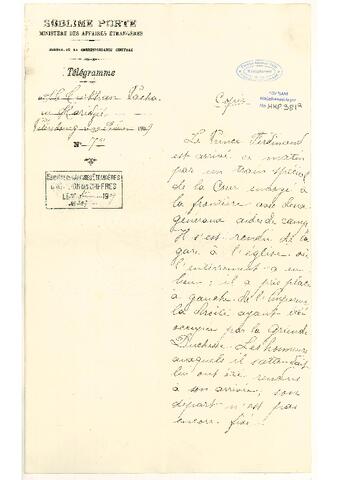 SUBLIME PORTE
MINISTÈRE DES AFFAIRES ÉTRANGÈRES
BUREAU DE LA CORRESPONDANCE CENTRALE
Télégramme
Pacha
Pétersbourg
N°
Copie
HRP 381
Le Prince Ferdinand
est arrivé ce matin
par un train spécial
de la Cour envoyé à
la frontière avec deux
généraux aides de camp
Il s'est rendu de la
gare à l'église où
l'enterrement a eu
lieu; il a pris place
à gauche de l'Empereur
la droite ayant été
occupée par la Grande
Duchesse. Les honneurs
auxquels il s'attendait
lui ont été rendus
à son arrivée; son
départ n'est pas
encore fixé.